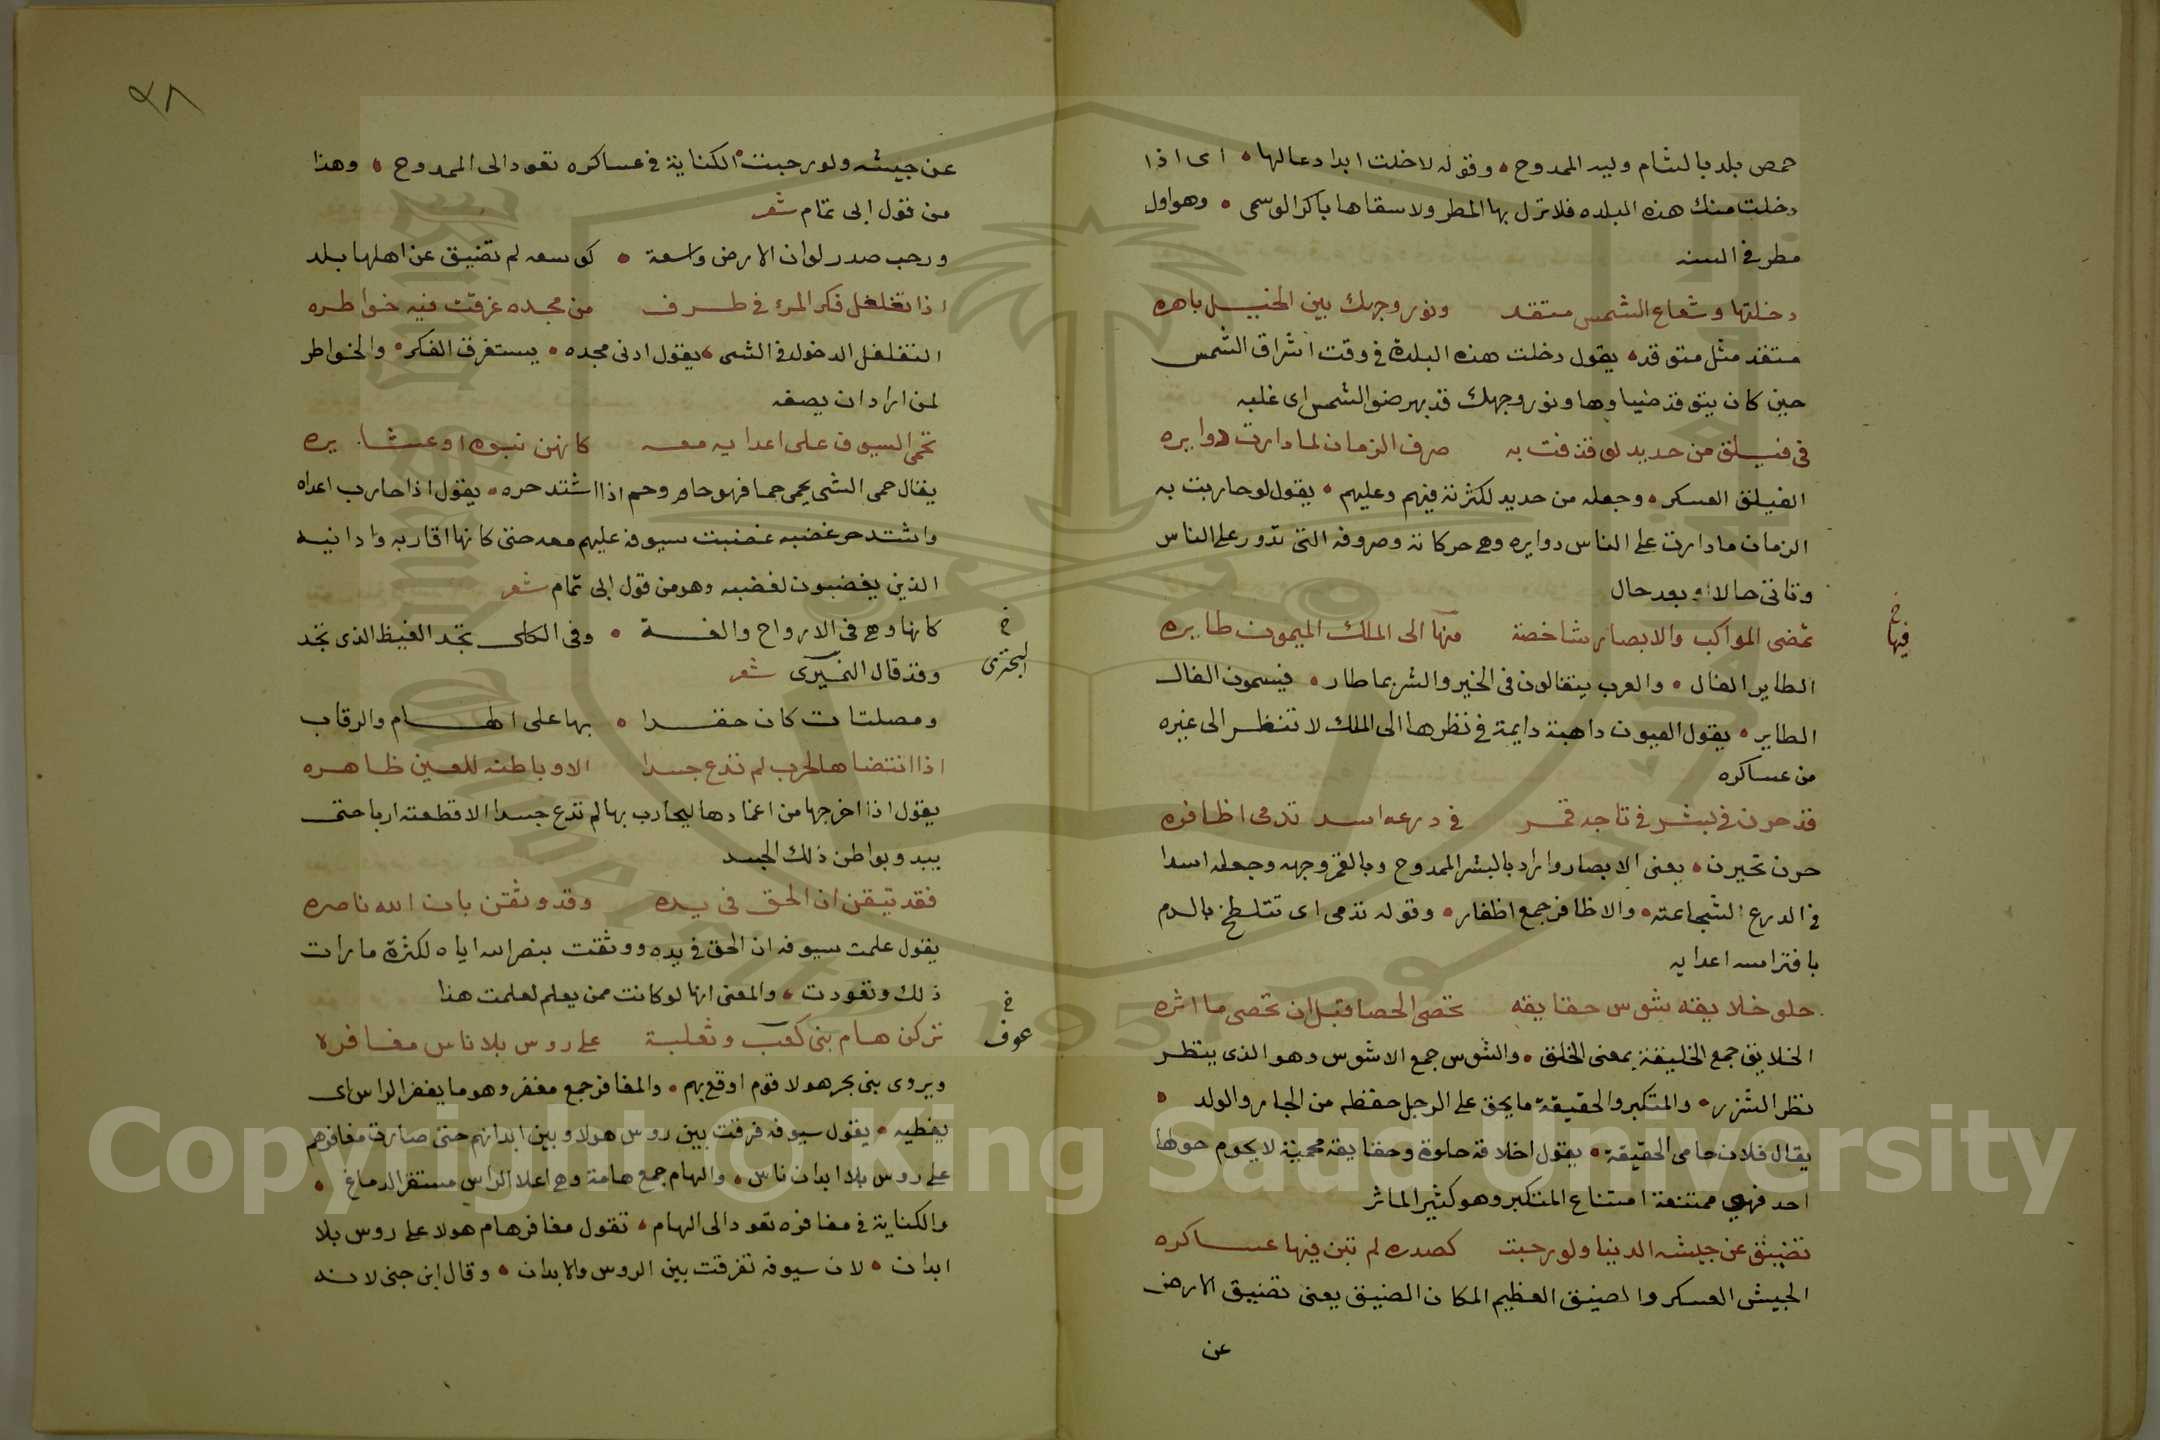 حمص بلد بالشام وليه الممدوح • وقوله لا خلت ابدا دعا لها • اى اذا
دخلت منك هذه البلده فلا نزل بها المطر ولا سقاها باكر الوسمى • وهو اول
مطر فى السنه
دخلتها وشعاع الشمس متقد ونور وجهك بين الخيل باهره
متقد مثل متوقد • يقول دخلت هذه البلدة فى وقت اشراق الشمس
حين كان يتوقد ضياوها ونور وجهك قد بهر ضو الشمس اى غلبه
فى فيلق من حديد لو قذفت به صرف الزمان لما دارت دوايره
الفيلق العسكر • وجعله من حديد لكثرته فيهم وعليهم • يقول لو حاربت به
الزمان ما دارت على الناس دوايره وهى حركاته وصروفه التى تدور على الناس
وتاتى حالا بعد حال
تمضى المواكب والابصار شاخصة منها الى الملك الميمون طايره
خ
فيها
الطاير الفال • والعرب يتفالون فى الخير والشر بما طار • فيسمون الفال
الطاير • يقول العيون داهبة دايمة فى نظرها الى الملك لا تنظر الى غيره
من عساكره
قد حرن فى بشر فى تاجه قمر فى درعه اسد تدمى اظافره
حرن تحيرن • يعنى الابصار واراد بالبشر الممدوح وبالقمر وجهه وجعله اسدا
فى الدرع لشجاعته • والاظافر جمع اظفار • وقوله تدمى اى تتلطخ بالدم
بافتراسه اعدايه
حلو خلايقه شوس حقايقه تحصى الحصا قبل ان تحصى ماثره
الخلايق جمع الخليقة بمعنى الخلق • والشوس جمع الاشوس وهو الذى ينظر
نظر الشزر • والمتكبر والحقيقة ما يحق على الرجل حفظه من الجار والولد •
يقال فلان حامى الحقيقة • يقول اخلاقه حلوة وحقايقه محمية لا يحوم حولها
احد فهى ممتنعة امتناع المتكبر وهو كثير الماثر
تضيق عن جيشه الدنيا ولو رحبت كصدره لم تبن فيها عساكره
الجيش العسكر والضيق العظيم المكان الضيق يعنى تضيق الارض
عن
٩٨
عن جيشه ولو رحبت الكناية فى عساكره تعود الى الممدوح • وهذا
من قول ابى تمام شعر
ورحب صدر لو ان الارض واسعة • كوسعه لم تضيق عن اهلها بلد
اذا تغلغل فكر المرء فى طرف من مجده غرقت فيه خواطره
التغلغل الدخول فى الشى • يقول ادنى مجده • يستغرق الفكر • والخواطر
لمن اراد ان يصفه
تحمى السيوف على اعدايه معه كانهن بنوه او عشايره
يقال حمى الشى يحمى حما فهو حام وحم اذا اشتد حره • يقول اذا حارب اعداه
واشتد حر غضبه غضبت سيوفه عليهم معه حتى كانها اقاربه وادانيه
الذين يغضبون لغضبه وهو من قول ابى تمام شعر
كانها وهى فى الارواح والغة • وفى الكلى تجد الغيظ الذى تجد
خ
البحترى
وقد قال النميرى شعر
ومصلتات كان حقدا • بها على الهام والرقاب
اذا انتضاها لحرب لم تدع جسدا الا وباطنه للعين ظاهره
يقول اذا اخرجها من اغمادها ليحارب بها لم تدع جسدا الا قطعته اربا حتى
يبدو بواطن ذلك الجسد
فقد تيقن ان الحق فى يده وقد وثقن بان الله ناصره
يقول علمت سيوفه ان الحق فى يده ووثقت بنصر الله اياه لكثرة ما رات
ذلك وتعودت • والمعنى انها لو كانت ممن يعلم لعلمت هذا
تركن هام بنى كعب وثعلبة على روس بلا ناس مغافره
خ
عوف
ويروى بنى بحر هولا قوم اوقع بهم • والمغافر جمع مغفر وهو ما يغفر الراس اى
يغطيه • يقول سيوفه فرقت بين روس هولا وبين ابدانهم حتى صارت مغافرهم
على روس بلا ابدان ناس • والهام جمع هامة وهى اعلا الراس مستقر الدماغ •
والكناية فى مغافره تعود الى الهام • تقول مغافر هام هولا على روس بلا
ابدان • لان سيوفه تفرقت بين الروس والابدان • وقال ابن جنى لانه
Copyright © King Saud University
1957